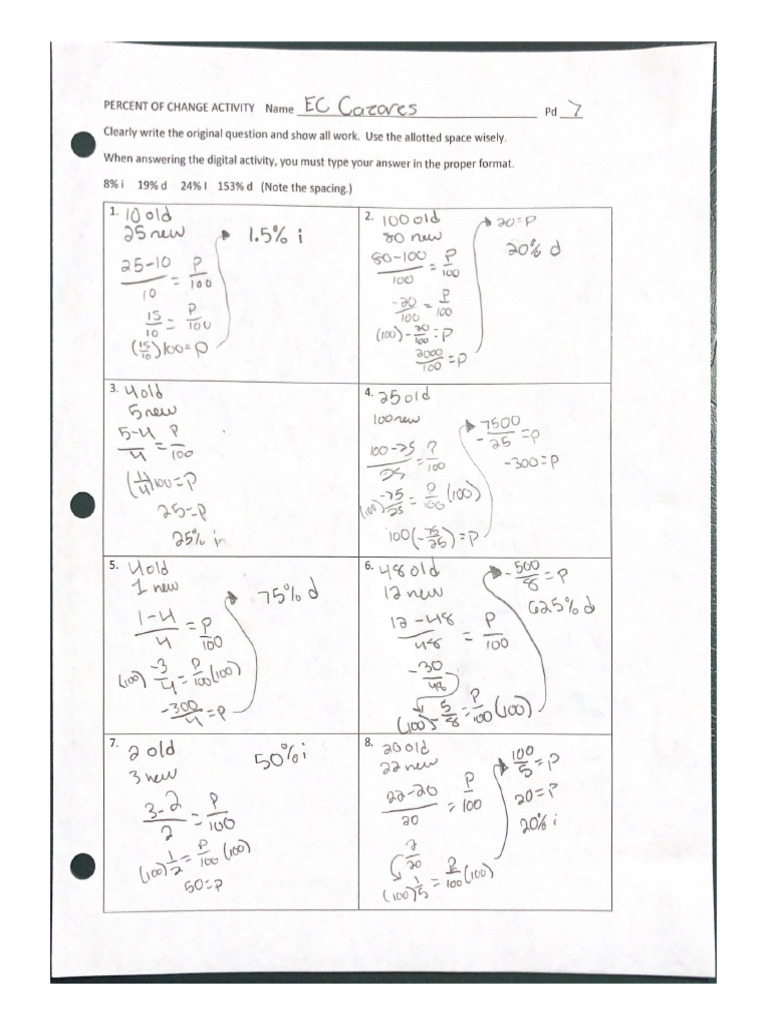 PERCENT OF CHANGE ACTIVITY Name EC Cazares Pd 7
Clearly write the original question and show all work. Use the allotted space wisely.
When answering the digital activity, you must type your answer in the proper format.
8% i 19% d 24% I 153% d (Note the spacing.)
1. 10 old
25 new
25-10/10 = P/100
15/10 = P/100
(15/10)100=P
1.5% i
2. 100 old
80 new
80-100/100 = P/100
-20/100 = P/100
(100)-20/100=P
2000/100=P
20=P
20% d
3. 4 old
5 new
5-4/4 = P/100
(1/4)100=P
25=P
25% in
4. 25 old
100 new
100-25/25 = P/100
(100)-75/25 = P/100(100)
100(-75/25)=P
-7500/25=P
-300=P
5. 4 old
1 new
1-4/4 = P/100
(100)-3/4 = P/100(100)
-300/4=P
75% d
6. 48 old
12 new
12-48/48 = P/100
-30/48
(100)-5/8=P/100(100)
-500/8=P
62.5% d
7. 2 old
3 new
3-2/2 = P/100
(100)1/2=P/100(100)
50=P
50% i
8. 20 old
22 new
22-20/20 = P/100
2/20
(100)1/5=P/100(100)
100/5=P
20=P
20% i